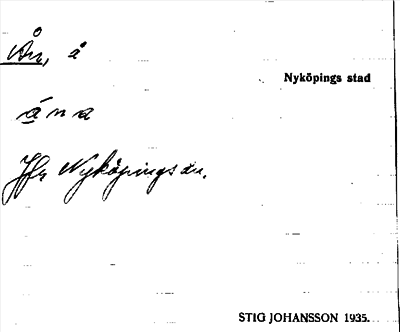 Ån, å
Nyköpings stad
ána
Jfr Nyköpingsån.
STIG JOHANSSON 1935.